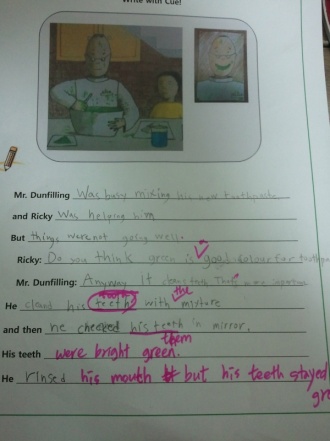 Write with Cue!
Mr. Dunfilling Was busy mixing his new toothpaste
and Ricky Was helping him
But things were not going well.
Ricky: Do you think green is a good colour for toothpaste
Mr. Dunfilling: Anyway it cleans teeth That's more important
He cleand his teeth with the mixture
and then he checked his teeth in mirror,
them
His teeth were bright green.
He rinsed his mouth but his teeth stayed
gre